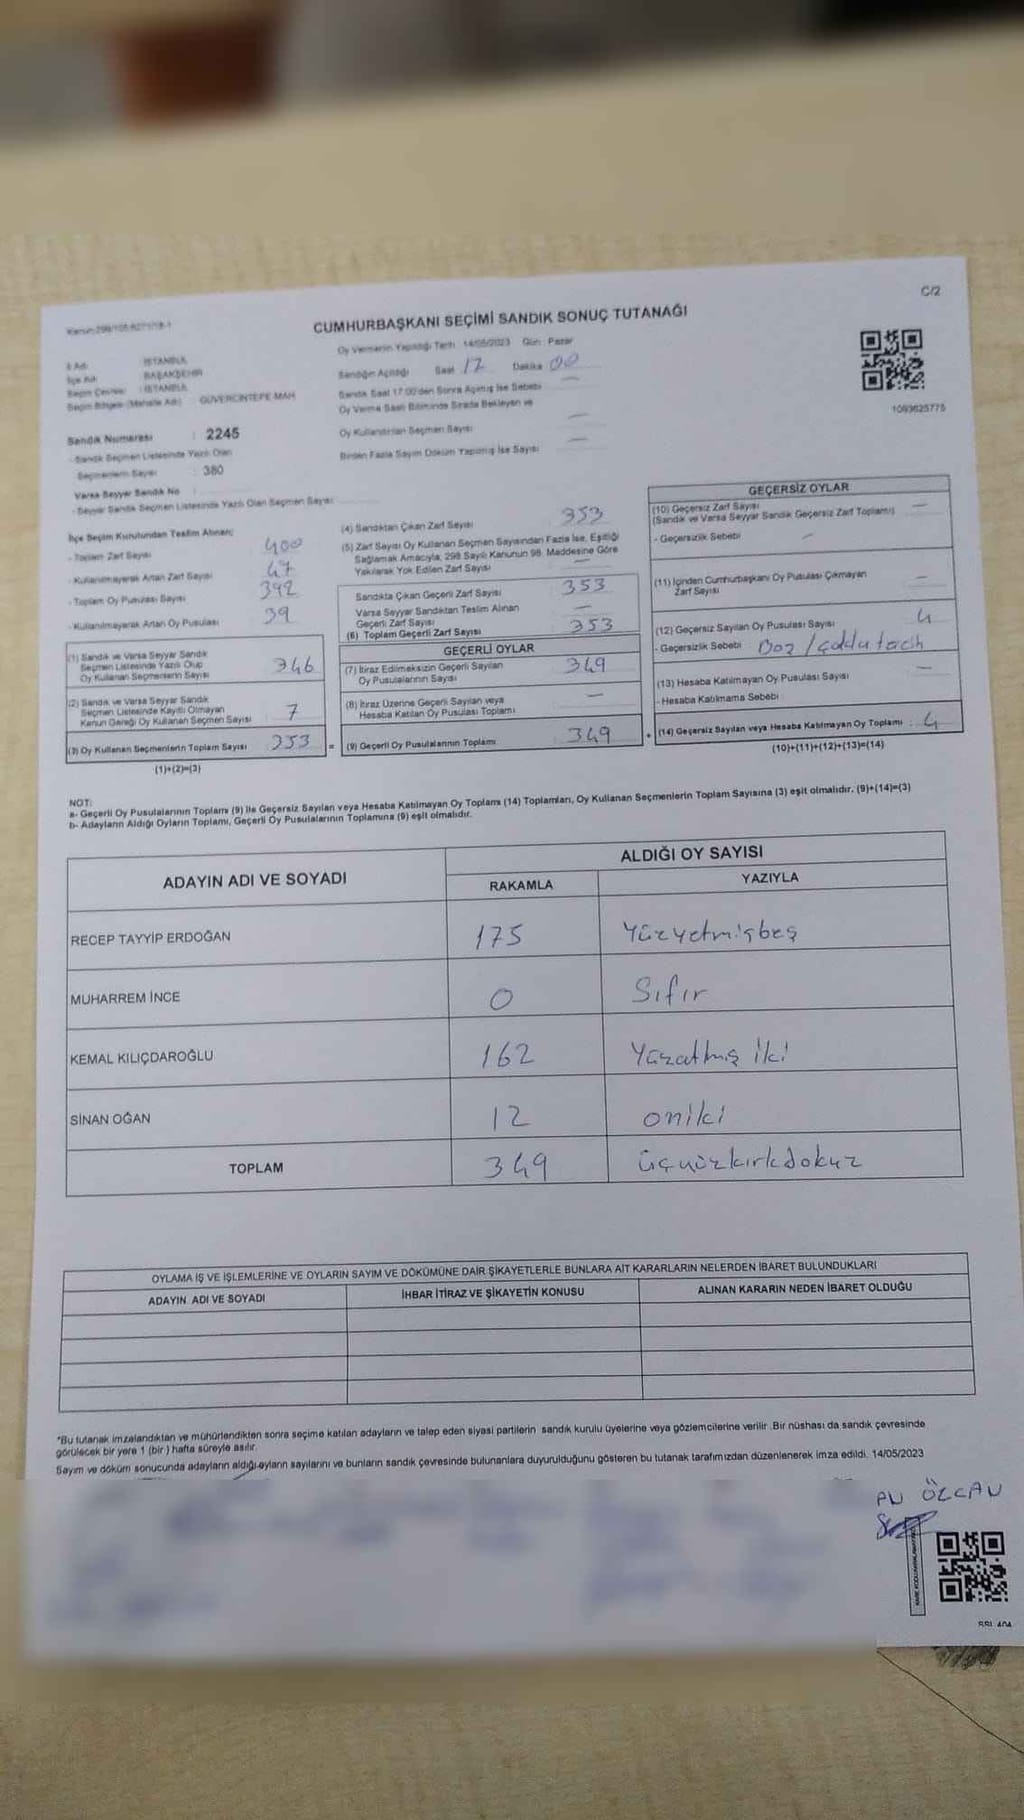 C/2
CUMHURBAŞKANI SEÇİMİ SANDIK SONUÇ TUTANAĞI
Oy Vermenin Yapıldığı Tarih 14/05/2023 Gün: Pazar
İl Adı : İSTANBUL
İlçe Adı : BAŞAKŞEHİR
Seçim Çevresi : İSTANBUL
Seçim Bölgesi (Mahalle Adı) : GÜVERCİNTEPE MAH
Sandığın Açıldığı Saat 17 Dakika 00
Sandık Saat 17:00'den Sonra Açılmış İse Sebebi —
Oy Verme Saati Bitiminde Sırada Bekleyen ve
Oy Kullandırılan Seçmen Sayısı —
Birden Fazla Sayım Döküm Yapılmış İse Sayısı —
1093625775
Sandık Numarası : 2245
- Sandık Seçmen Listesinde Yazılı Olan
Seçmenlerin Sayısı : 380
Varsa Seyyar Sandık No
- Seyyar Sandık Seçmen Listesinde Yazılı Olan Seçmen Sayısı
İlçe Seçim Kurulundan Teslim Alınan;
- Toplam Zarf Sayısı 400
- Kullanılmayarak Artan Zarf Sayısı 47
- Toplam Oy Pusulası Sayısı 392
- Kullanılmayarak Artan Oy Pusulası 39
(1) Sandık ve Varsa Seyyar Sandık
Seçmen Listesinde Yazılı Olup
Oy Kullanan Seçmenlerin Sayısı 346
(2) Sandık ve Varsa Seyyar Sandık
Seçmen Listesinde Kayıtlı Olmayan
Kanun Gereği Oy Kullanan Seçmen Sayısı 7
(3) Oy Kullanan Seçmenlerin Toplam Sayısı 353 =
(1)+(2)=(3)
(4) Sandıktan Çıkan Zarf Sayısı 353
(5) Zarf Sayısı Oy Kullanan Seçmen Sayısından Fazla İse, Eşitliği
Sağlamak Amacıyla, 298 Sayılı Kanunun 98. Maddesine Göre
Yakılarak Yok Edilen Zarf Sayısı —
Sandıkta Çıkan Geçerli Zarf Sayısı 353
Varsa Seyyar Sandıktan Teslim Alınan
Geçerli Zarf Sayısı —
(6) Toplam Geçerli Zarf Sayısı 353
GEÇERLİ OYLAR
(7) İtiraz Edilmeksizin Geçerli Sayılan
Oy Pusulalarının Sayısı 349
(8) İtiraz Üzerine Geçerli Sayılan veya
Hesaba Katılan Oy Pusulası Toplamı —
(9) Geçerli Oy Pusulalarının Toplamı 349 +
GEÇERSİZ OYLAR
(10) Geçersiz Zarf Sayısı —
(Sandık ve Varsa Seyyar Sandık Geçersiz Zarf Toplamı)
- Geçersizlik Sebebi —
(11) İçinden Cumhurbaşkanı Oy Pusulası Çıkmayan
Zarf Sayısı —
(12) Geçersiz Sayılan Oy Pusulası Sayısı 4
- Geçersizlik Sebebi : Boz /
(13) Hesaba Katılmayan Oy Pusulası Sayısı —
- Hesaba Katılmama Sebebi
(14) Geçersiz Sayılan veya Hesaba Katılmayan Oy Toplamı : 4
(10)+(11)+(12)+(13)=(14)
NOT:
a- Geçerli Oy Pusulalarının Toplamı (9) ile Geçersiz Sayılan veya Hesaba Katılmayan Oy Toplamı (14) Toplamları, Oy Kullanan Seçmenlerin Toplam Sayısına (3) eşit olmalıdır. (9)+(14)=(3)
b- Adayların Aldığı Oyların Toplamı, Geçerli Oy Pusulalarının Toplamına (9) eşit olmalıdır.
ADAYIN ADI VE SOYADI
ALDIĞI OY SAYISI
RAKAMLA YAZIYLA
RECEP TAYYİP ERDOĞAN 175 Yüzyetmişbeş
MUHARREM İNCE 0 Sıfır
KEMAL KILIÇDAROĞLU 162 Yüzatmış iki
SİNAN OĞAN 12 oniki
TOPLAM 349 üçyüzkırkdokuz
OYLAMA İŞ VE İŞLEMLERİNE VE OYLARIN SAYIM VE DÖKÜMÜNE DAİR ŞİKAYETLERLE BUNLARA AİT KARARLARIN NELERDEN İBARET BULUNDUKLARI
ADAYIN ADI VE SOYADI İHBAR İTİRAZ VE ŞİKAYETİN KONUSU ALINAN KARARIN NEDEN İBARET OLDUĞU
*Bu tutanak imzalandıktan ve mühürlendikten sonra seçime katılan adayların ve talep eden siyasi partilerin sandık kurulu üyelerine veya gözlemcilerine verilir .Bir nüshası da sandık çevresinde
görülecek bir yere 1 (bir ) hafta süreyle asılır.
Sayım ve döküm sonucunda adayların aldığı oyların sayılarını ve bunların sandık çevresinde bulunanlara duyurulduğunu gösteren bu tutanak tarafımızdan düzenlenerek imza edildi. 14/05/2023
ÖZCAN